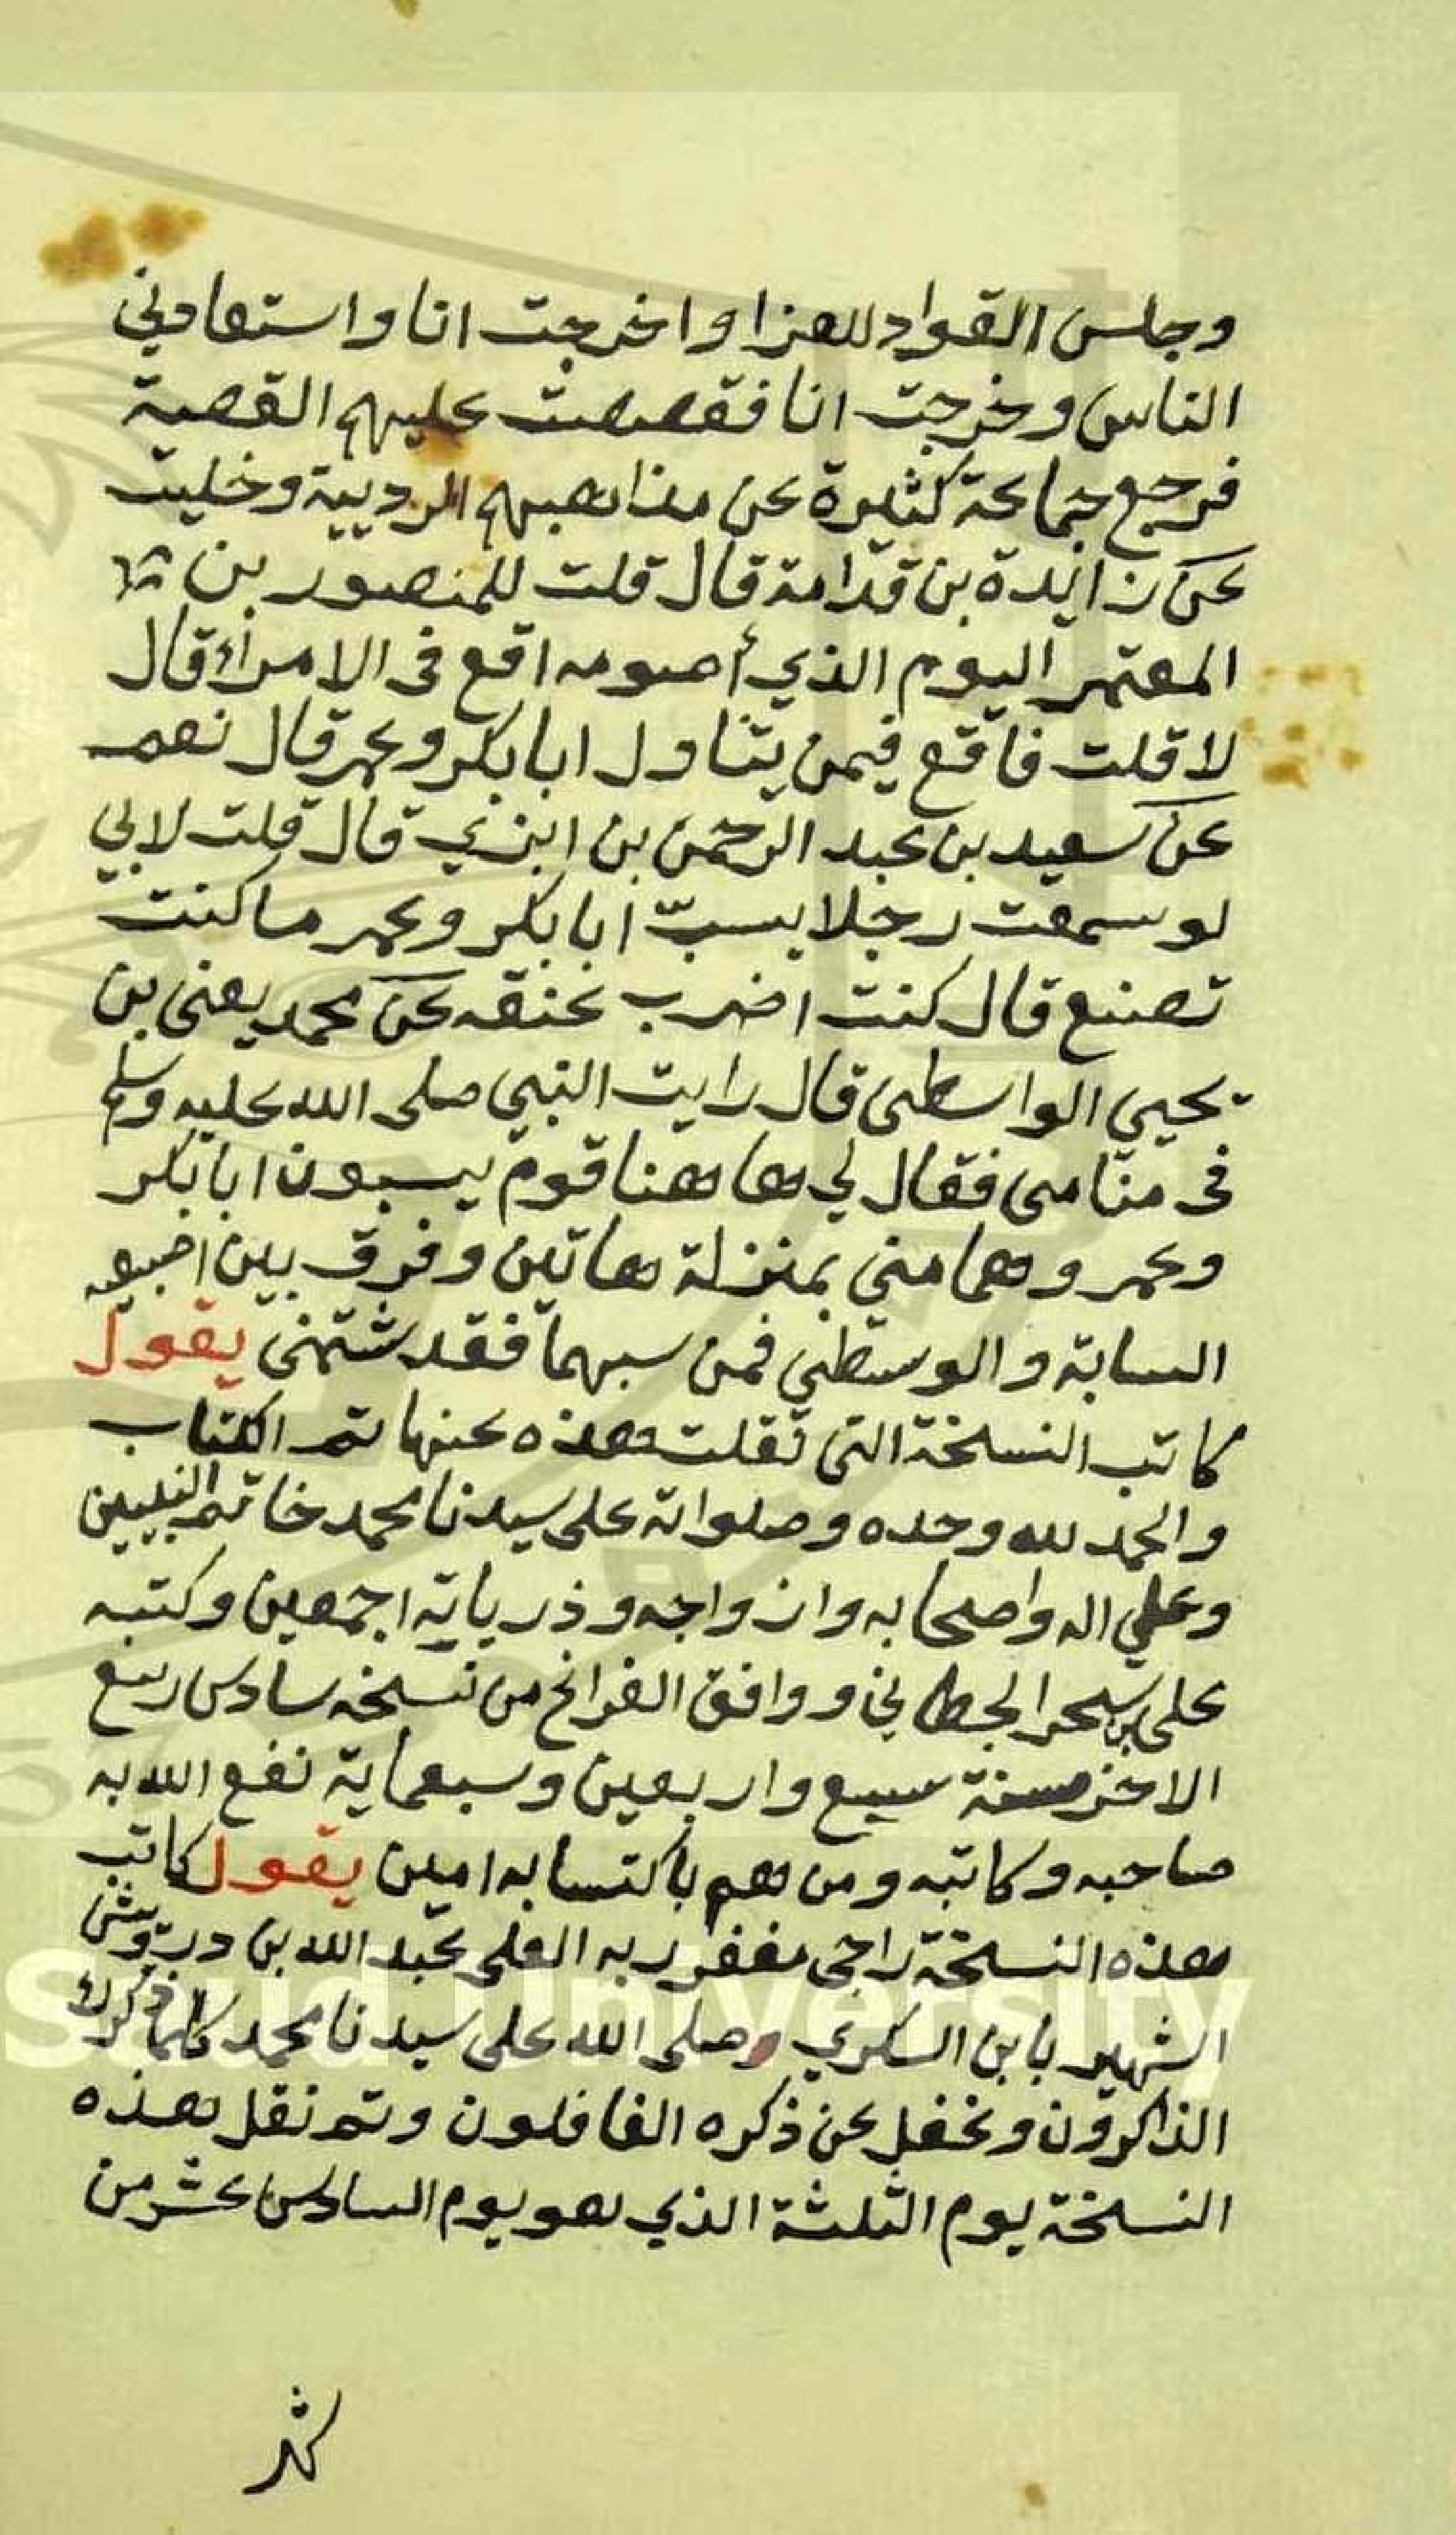 وجلس القواد للعزا واخرجت انا واستعادني
الناس وخرجت انا فقصصت عليهم القصية
فرجع جماعة كثيرة عن مذاهبهم الرديية وخليت
عن زايدة بن قدامة قال قلت للمنصور بن
المعتمر اليوم الذي أصومه اقع في الامراء قال
لا قلت فاقع فيمن يتناول ابا بكر وعمر قال نعم
عن سعيد بن عبد الرحمن بن ابزي قال قلت لابي
لو سمعت رجلا يسبّ ابا بكر وعمر ما كنت
تصنع قال كنت اضرب عنقه عن محمد يعني بن
يحيي الواسطي قال رايت النبي صلى الله عليه وسلم
في منامي فقال لي ها هنا قوم يسبون ابا بكر
وعمر وهما مني بمنزلة هاتين وفرق بين اصبعيه
السبابة والوسطي فمن سبهما فقد شتمني يقول
كاتب النسخة التي نقلت هذه عنها تم الكتاب
والحمد لله وحده وصلواته على سيدنا محمد خاتم النبيين
وعلي اله واصحابه وازواجه وذرياته اجمعين وكتبه
على بن سحر ووافق الفراغ من نسخه سادس ربيع
الاخر سنة سبع واربعين وسبعماية نفع الله به
صاحبه وكاتبه ومن هم باكتسابه امين يقول كاتب
هذه النسخة راجي مغفر ربه العلى عبد الله بن درويش
الشهير بابن السكري وصلى الله على سيدنا محمد كلما ذكرك
الذاكرون وغفل عن ذكره الغافلون وتم نقل هذه
النسخة يوم الثلثة الذي هو يوم السادس عشر من
Saud University